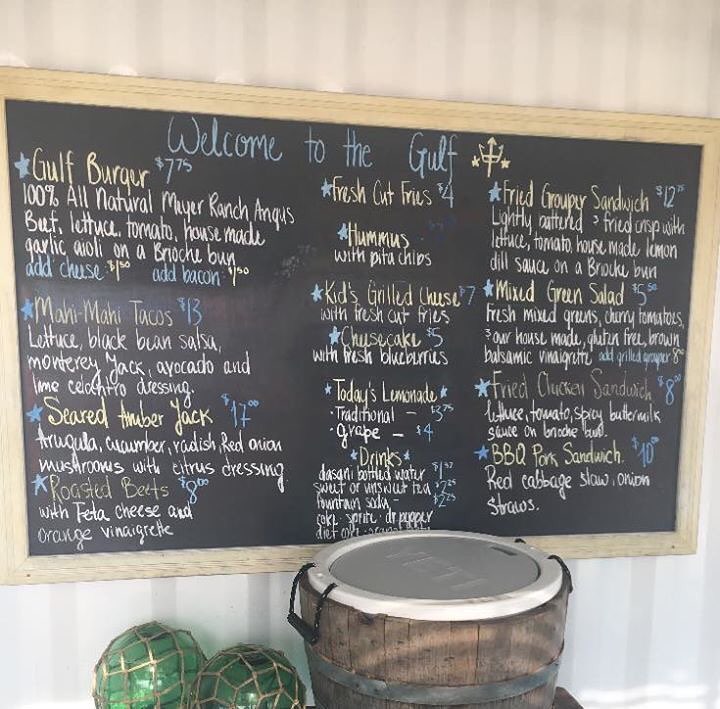 Welcome to the Gulf
Gulf Burger $7.75
100% All Natural Meyer Ranch Angus
Beef, lettuce, tomato, house made
garlic aioli on a Brioche bun
add cheese $1.50 add bacon $1.50
Mahi-Mahi Tacos $13
Lettuce, black bean salsa,
monterey Jack, avocado and
lime celantro dressing.
Seared Amber Jack $17.00
Arugula, cucumber, radish, Red onion
mushrooms with citrus dressing
Roasted Beets $8.00
with Feta cheese and
orange vinaigrette
Fresh Cut Fries $4
Hummus
with pita chips
Kid's Grilled Cheese $7
with fresh cut fries
Cheesecake $5
with fresh blueberries
Today's Lemonade
· Traditional - $3.75
· grape - $4
Drinks
dasani bottled water
sweet or unsweet tea $2.25
fountain soda - $2.25
coke · sprite · dr pepper
diet coke
Fried Grouper Sandwich
Lightly battered & fried crisp with
lettuce, tomato, house made lemon
dill sauce on a Brioche bun
Mixed Green Salad $5.50
Fresh mixed greens, cherry tomatoes,
& our house made, gluten free, brown
balsamic vinaigrette add grilled grouper
Fried Chicken Sandwich
lettuce, tomato, spicy buttermilk
sauce on brioche bun.
BBQ Pork Sandwich. $10.00
Red cabbage slaw, onion
straws.
YETI